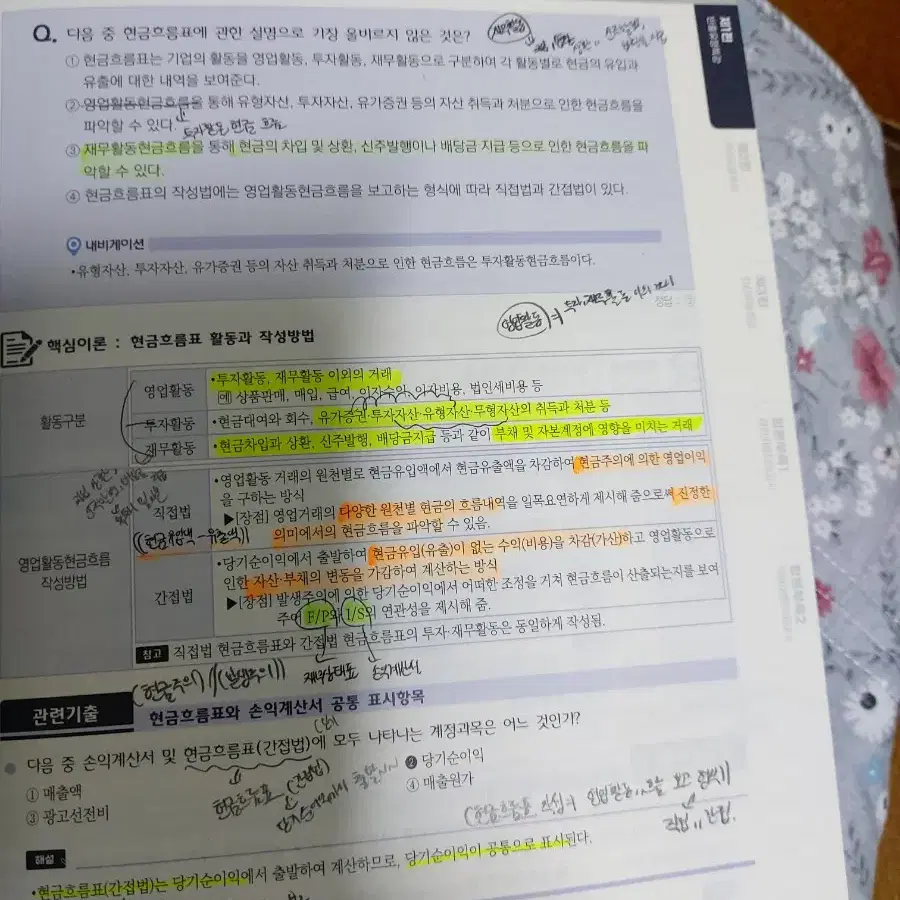 Q. 다음 중 현금흐름표에 관한 설명으로 가장 올바르지 않은 것은?
① 현금흐름표는 기업의 활동을 영업활동, 투자활동, 재무활동으로 구분하여 각 활동별로 현금의 유입과
유출에 대한 내역을 보여준다.
② 영업활동현금흐름을 통해 유형자산, 투자자산, 유가증권 등의 자산 취득과 처분으로 인한 현금흐름을
파악할 수 있다.
투자활동 현금 흐름
③ 재무활동현금흐름을 통해 현금의 차입 및 상환, 신주발행이나 배당금 지급 등으로 인한 현금흐름을 파
악할 수 있다.
④ 현금흐름표의 작성법에는 영업활동현금흐름을 보고하는 형식에 따라 직접법과 간접법이 있다.
내비게이션
•유형자산, 투자자산, 유가증권 등의 자산 취득과 처분으로 인한 현금흐름은 투자활동현금흐름이다.
정답 : ②
영업활동
핵심이론 : 현금흐름표 활동과 작성방법
활동구분
영업활동
•투자활동, 재무활동 이외의 거래
예 상품판매, 매입, 급여, 이자수익, 이자비용, 법인세비용 등
투자활동
•현금대여와 회수, 유가증권·투자자산·유형자산·무형자산의 취득과 처분 등
재무활동
•현금차입과 상환, 신주발행, 배당금지급 등과 같이 부채 및 자본계정에 영향을 미치는 거래
영업활동현금흐름
작성방법
직접법
(현금유입액 - 유출액)
•영업활동 거래의 원천별로 현금유입액에서 현금유출액을 차감하여 현금주의에 의한 영업이익
을 구하는 방식
▶[장점] 영업거래의 다양한 원천별 현금의 흐름내역을 일목요연하게 제시해 줌으로써 진정한
의미에서의 현금흐름을 파악할 수 있음.
간접법
•당기순이익에서 출발하여 현금유입(유출)이 없는 수익(비용)을 차감(가산)하고 영업활동으로
인한 자산·부채의 변동을 가감하여 계산하는 방식
▶[장점] 발생주의에 의한 당기순이익에서 어떠한 조정을 거쳐 현금흐름이 산출되는지를 보여
주어 F/P와 I/S의 연관성을 제시해 줌.
참고 직접법 현금흐름표와 간접법 현금흐름표의 투자·재무활동은 동일하게 작성됨.
(현금주의) (발생주의) 재무상태표 손익계산서
관련기출 현금흐름표와 손익계산서 공통 표시항목
다음 중 손익계산서 및 현금흐름표(간접법)에 모두 나타나는 계정과목은 어느 것인가?
① 매출액
② 당기순이익
③ 광고선전비
④ 매출원가
현금흐름표 (간접법)
직접 간접
해설
•현금흐름표(간접법)는 당기순이익에서 출발하여 계산하므로, 당기순이익이 공통으로 표시된다.